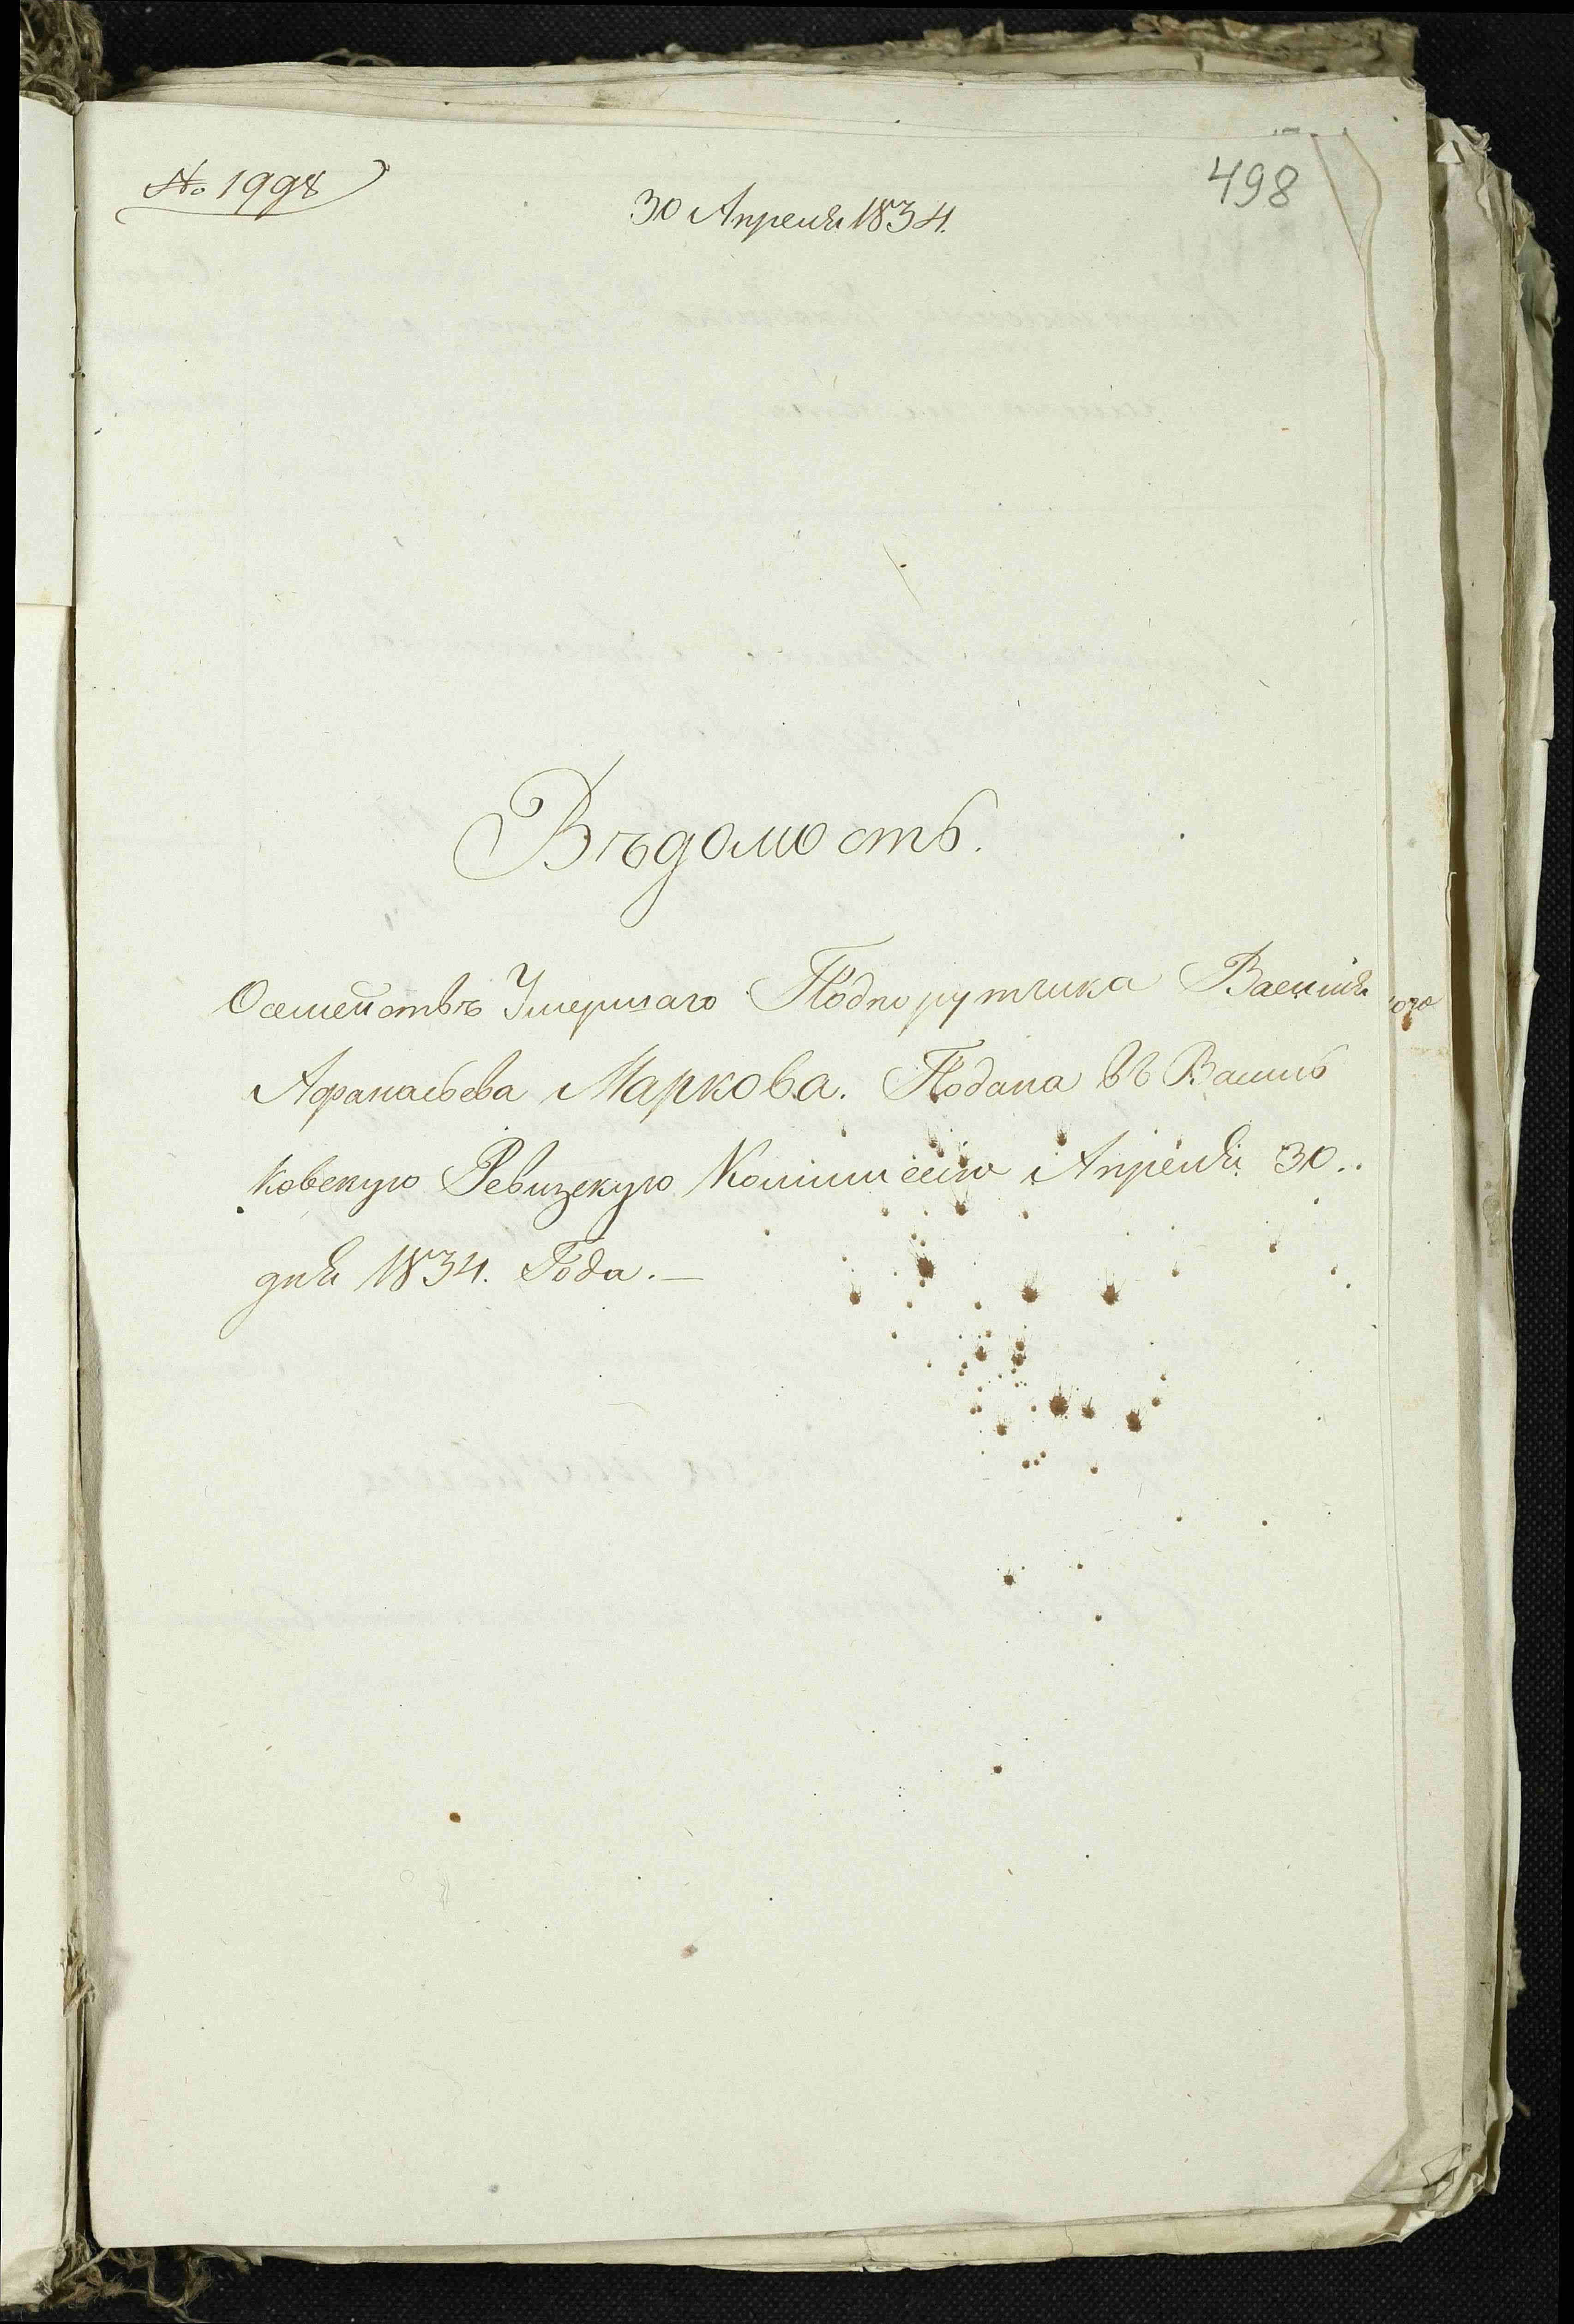 № 1998
30 Апреля 1834.
498
Вѣдомость.
Осемействѣ Умершаго Подпорутчика Василія
Афанасьева Маркова. Подана въ Василь
ковскую Ревизскую Коммиссію Апреля 30..
дня 1834. Года.—